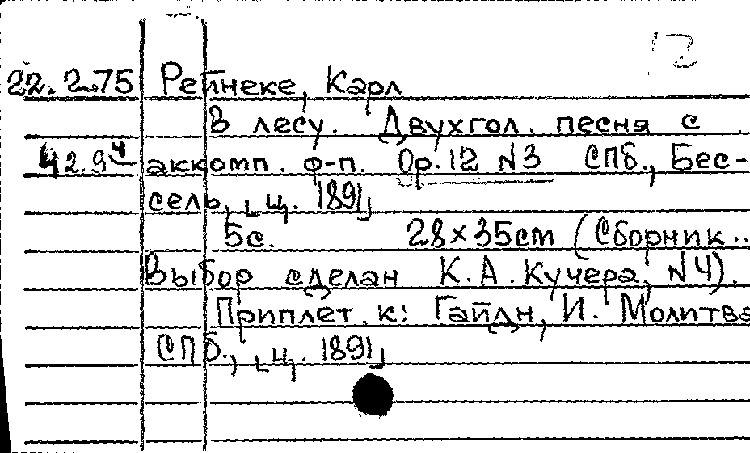 22.2.75 Рейнеке, Карл
В лесу. Двухгол. песня с
42.94 аккомп. ф-п. Ор.12 №3 СПб., Бес-
сель, [ц. 1891]
5с. 28×35cm (Сборник..
Выбор сделан К.А.Кучера, №4).
Приплет. к: Гайдн, И. Молитва
СПб., [ц. 1891]